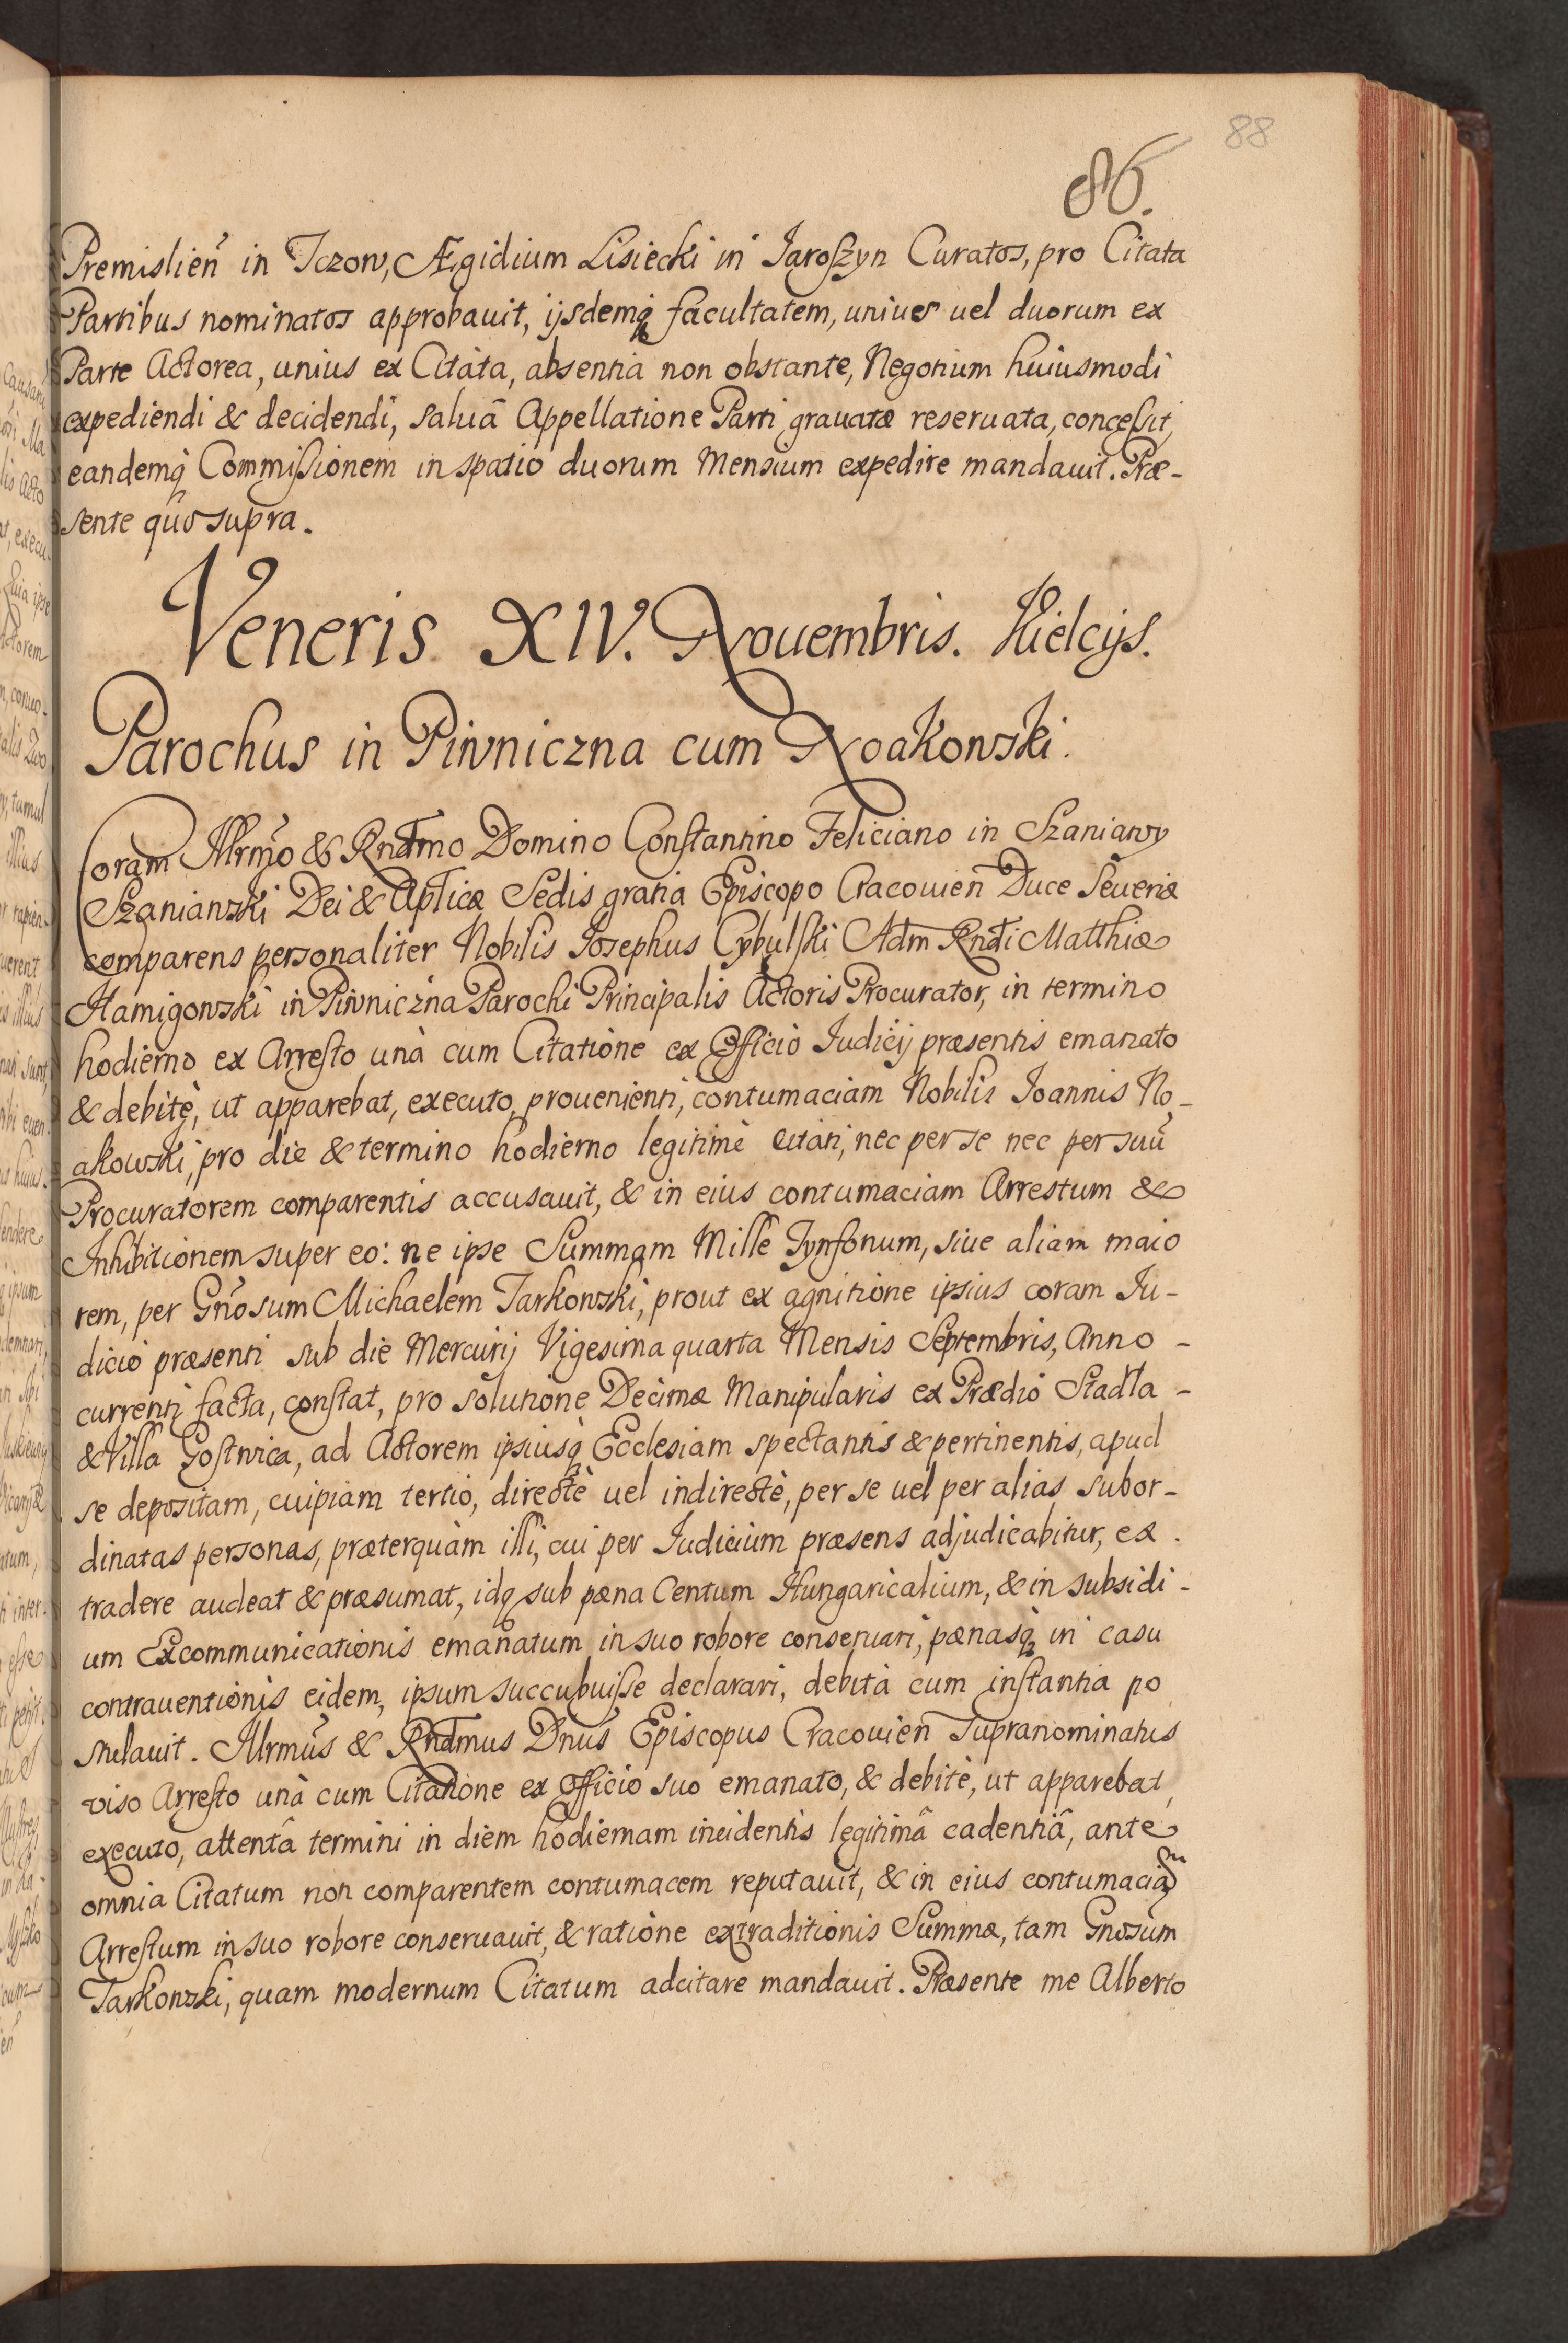 88
86.
Premislień in Tczow, Ægidium Lisiecki in Jaroszyn Curatos, pro Citata
Partibus nominatos approbauit, ijsdemq facultatem, unius uel duorum ex
Parte Actorea, unius ex Citata, absentia non obstante, Negotium huiusmodi
expediendi & decidendi, saluâ Appellatione Parti grauatæ reseruata, concessit,
eandemq Commissionem in spatio duorum Mensium expedire mandauit. Præ-
sente quo supra.
Veneris XIV. Nouembris. Kielcijs.
Parochus in Piwniczna cum Noakowski.
Coram Illrmo & Rndmo Domino Constantino Feliciano in Szaniawy
Szaniawski Dei & Aplicæ Sedis gratia Episcopo Cracouien Duce Seueriæ
comparens personaliter Nobilis Josephus Cybulski Adm Rndi Matthiæ
Hamigowski in Piwniczna Parochi Principalis Actoris Procurator, in termino
hodierno ex Arresto unà cum Citatione ex Officio Judicij præsentis emanato
& debitè, ut apparebat, executo, prouenienti, contumaciam Nobilis Joannis No-
akowski, pro die & termino hodierno legitimè citati, nec per se nec per suũ
Procuratorem comparentis accusauit, & in eius contumaciam Arrestum &
Inhibitionem super eo: ne ipse Summam Mille Tynfonum, siue aliam maio
rem, per Gnosum Michaelem Tarkowski, prout ex agnitione ipsius coram Ju-
dicio præsenti sub die Mercurij Vigesima quarta Mensis Septembris, Anno -
currenti facta, constat, pro solutione Decimæ Manipularis ex Prædio Stadła -
& Villa Gostwica, ad Actorem ipsiusq Ecclesiam spectantis & pertinentis, apud
se depositam, cuipiam tertio, directè uel indirectè, per se uel per alias subor-
dinatas personas, præterquàm illi, cui per Judicium præsens adjudicabitur, ex .
tradere audeat & præsumat, idq sub pæna Centum Hungaricalium, & in subsidi -
um Excommunicationis emanatum in suo robore conseruari, pænasq in casu
contrauentionis eidem, ipsum succubuisse declarari, debita cum instantia po
stulauit. Illrmus & Rndmus Dnus Episcopus Cracouien supranominatus
viso Arresto unà cum Citatione ex Officio suo emanato, & debitè, ut apparebat,
executo, attentâ termini in diem hodiernam incidentis legitimâ cadentiâ, ante
omnia Citatum non comparentem contumacem reputauit, & in eius contumaciam
Arrestum in suo robore conseruauit, & ratione extraditionis Summæ, tam Gnosum
Tarkowski, quam modernum Citatum adcitare mandauit. Præsente me Alberto